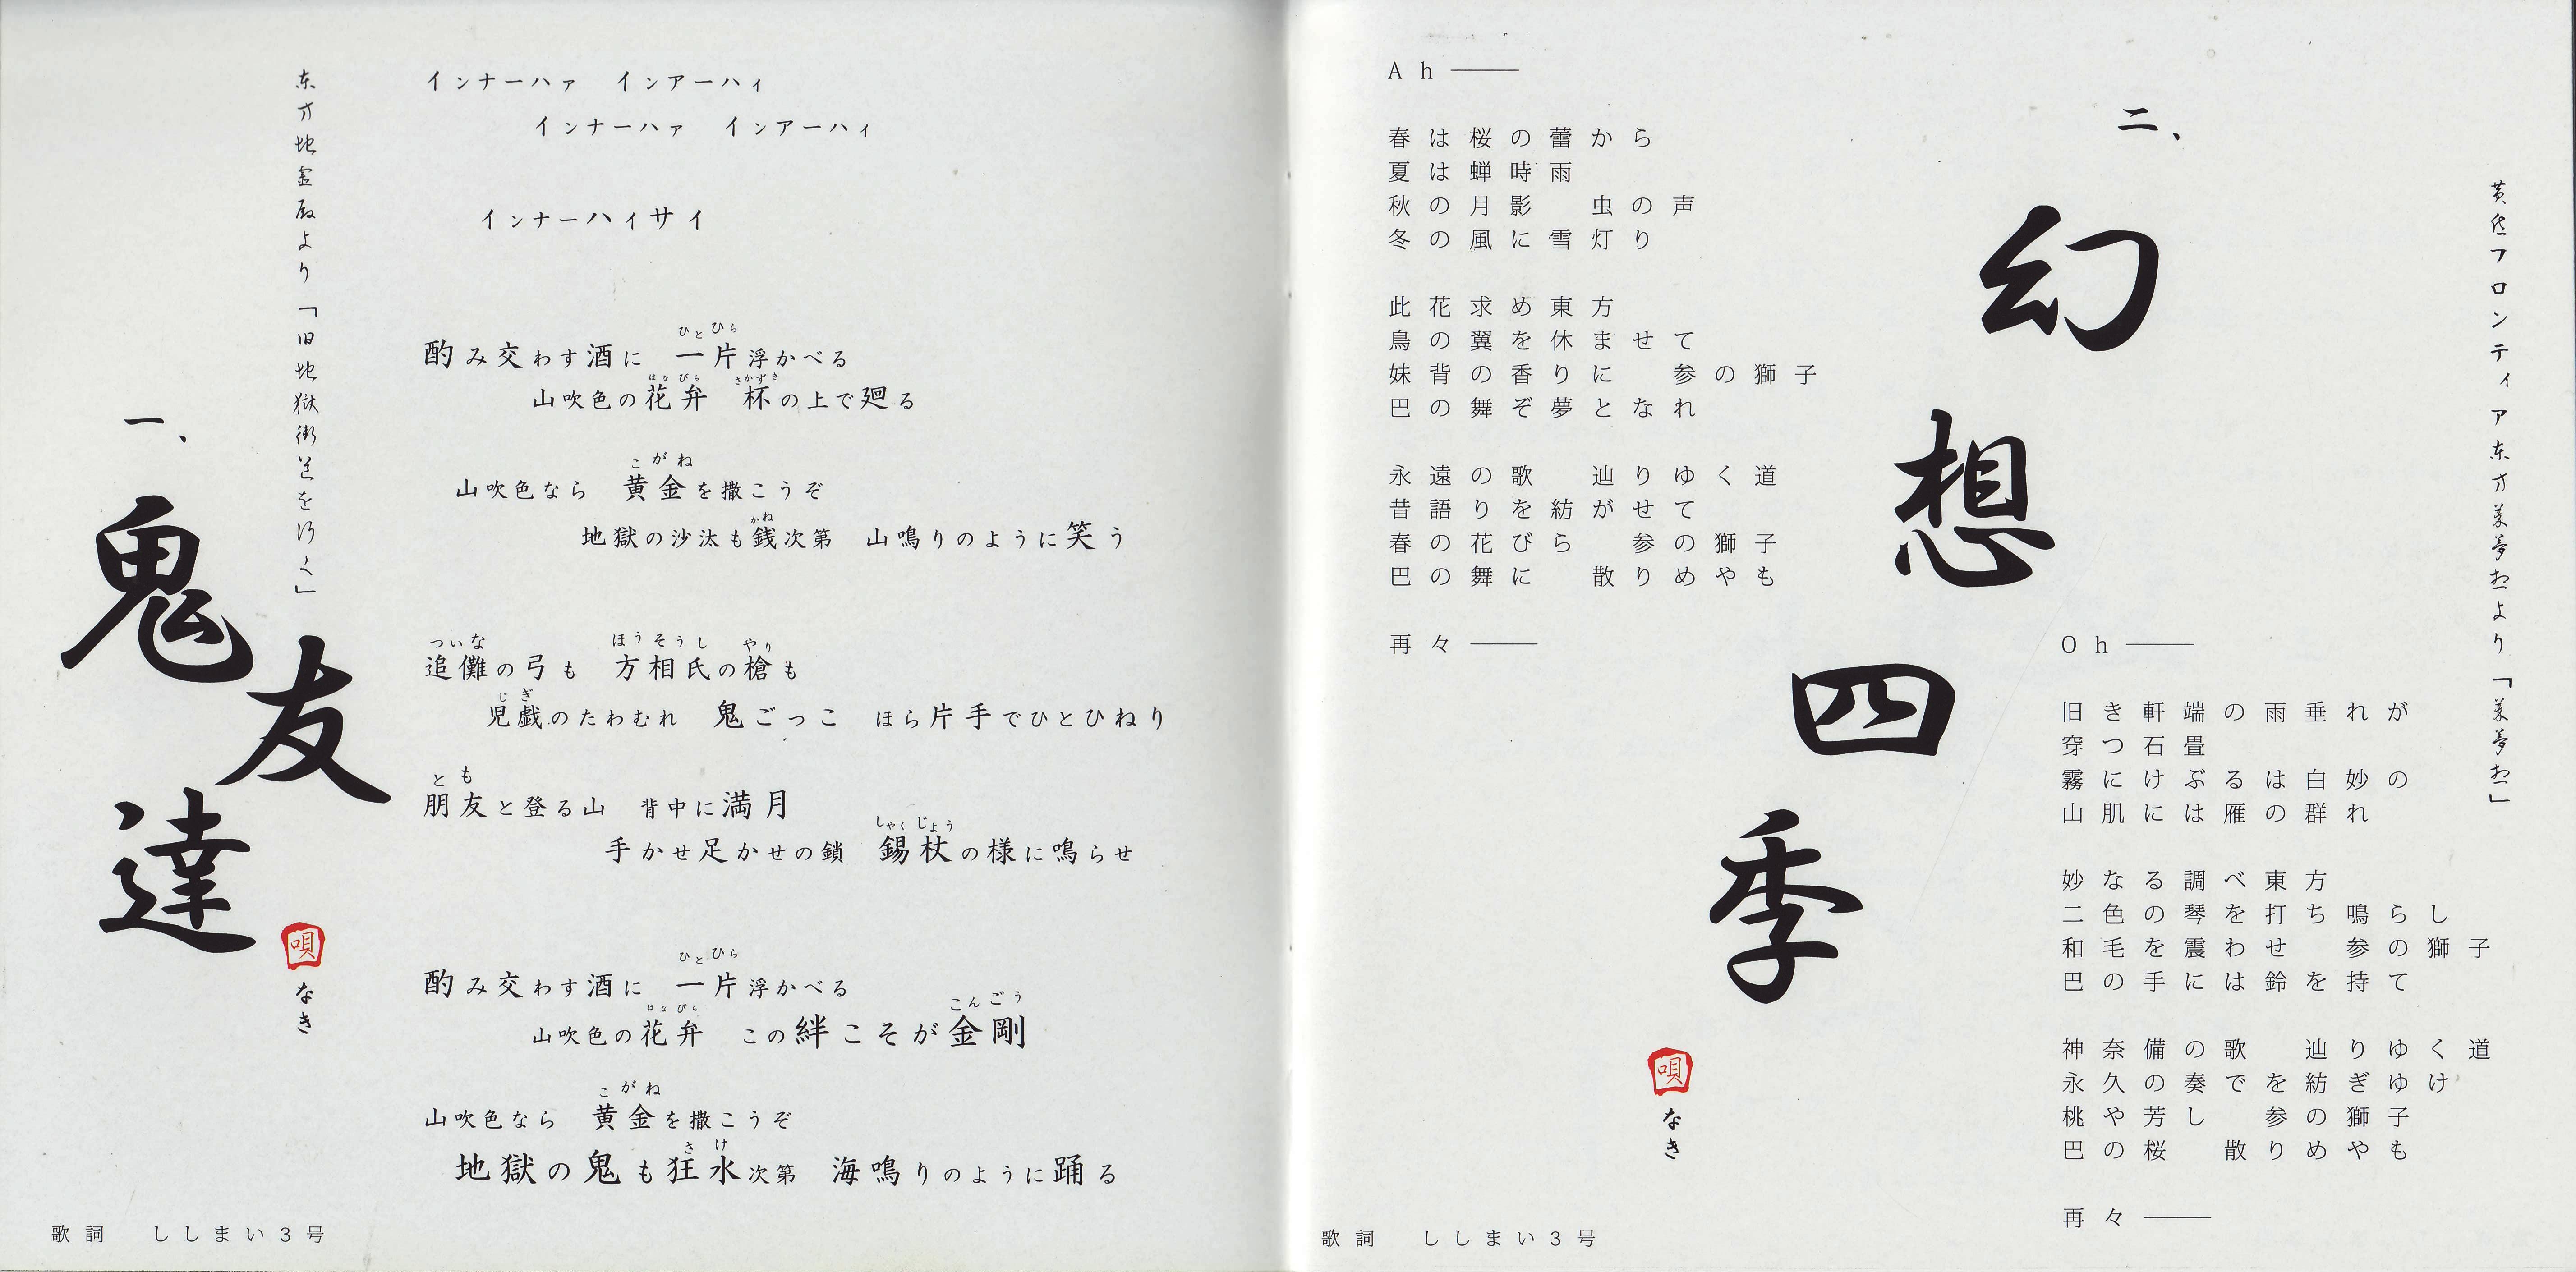 一、
鬼友達
東方地霊殿より「旧地獄街道を行く」
唄
なき
インナーハァ　インアーハィ
インナーハァ　インアーハィ
インナーハィサイ
酌み交わす酒に　一片浮かべる
ひとひら
山吹色の花弁　杯の上で廻る
はなびら　さかずき
山吹色なら　黄金を撒こうぞ
こがね
地獄の沙汰も銭次第　山鳴りのように笑う
かね
追儺の弓も　方相氏の槍も
ついな　ほうそうし　やり
児戯のたわむれ　鬼ごっこ　ほら片手でひとひねり
じぎ
朋友と登る山　背中に満月
とも
手かせ足かせの鎖　錫杖の様に鳴らせ
しゃくじょう
酌み交わす酒に　一片浮かべる
ひとひら
山吹色の花弁　この絆こそが金剛
はなびら　こんごう
山吹色なら　黄金を撒こうぞ
こがね
地獄の鬼も狂水次第　海鳴りのように踊る
さけ
歌詞　ししまい3号
二、
幻想四季
黄昏フロンティア東方萃夢想より「萃夢想」
唄
なき
Ah――
春は桜の蕾から
夏は蝉時雨
秋の月影　虫の声
冬の風に雪灯り
此花求め東方
鳥の翼を休ませて
妹背の香りに　参の獅子
巴の舞ぞ夢となれ
永遠の歌　辿りゆく道
昔語りを紡がせて
春の花びら　参の獅子
巴の舞に　散りめやも
再々――
Oh――
旧き軒端の雨垂れが
穿つ石畳
霧にけぶるは白妙の
山肌には雁の群れ
妙なる調べ東方
二色の琴を打ち鳴らし
和毛を震わせ　参の獅子
巴の手には鈴を持て
神奈備の歌　辿りゆく道
永久の奏でを紡ぎゆけ
桃や芳し　参の獅子
巴の桜　散りめやも
再々――
歌詞　ししまい3号